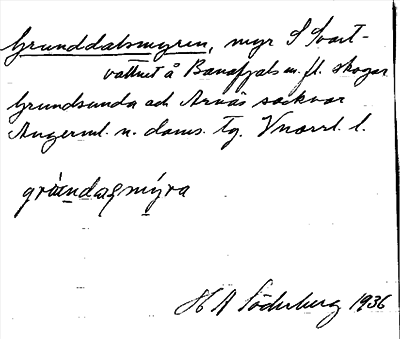 Grunddalsmyren, myr S Svart-
vattnet å Banafjäls m. fl. skogar
Grundsunda och Arnäs socknar
Ångerml. n. doms. tg. Vnorrl. l.
H A Söderberg 1936